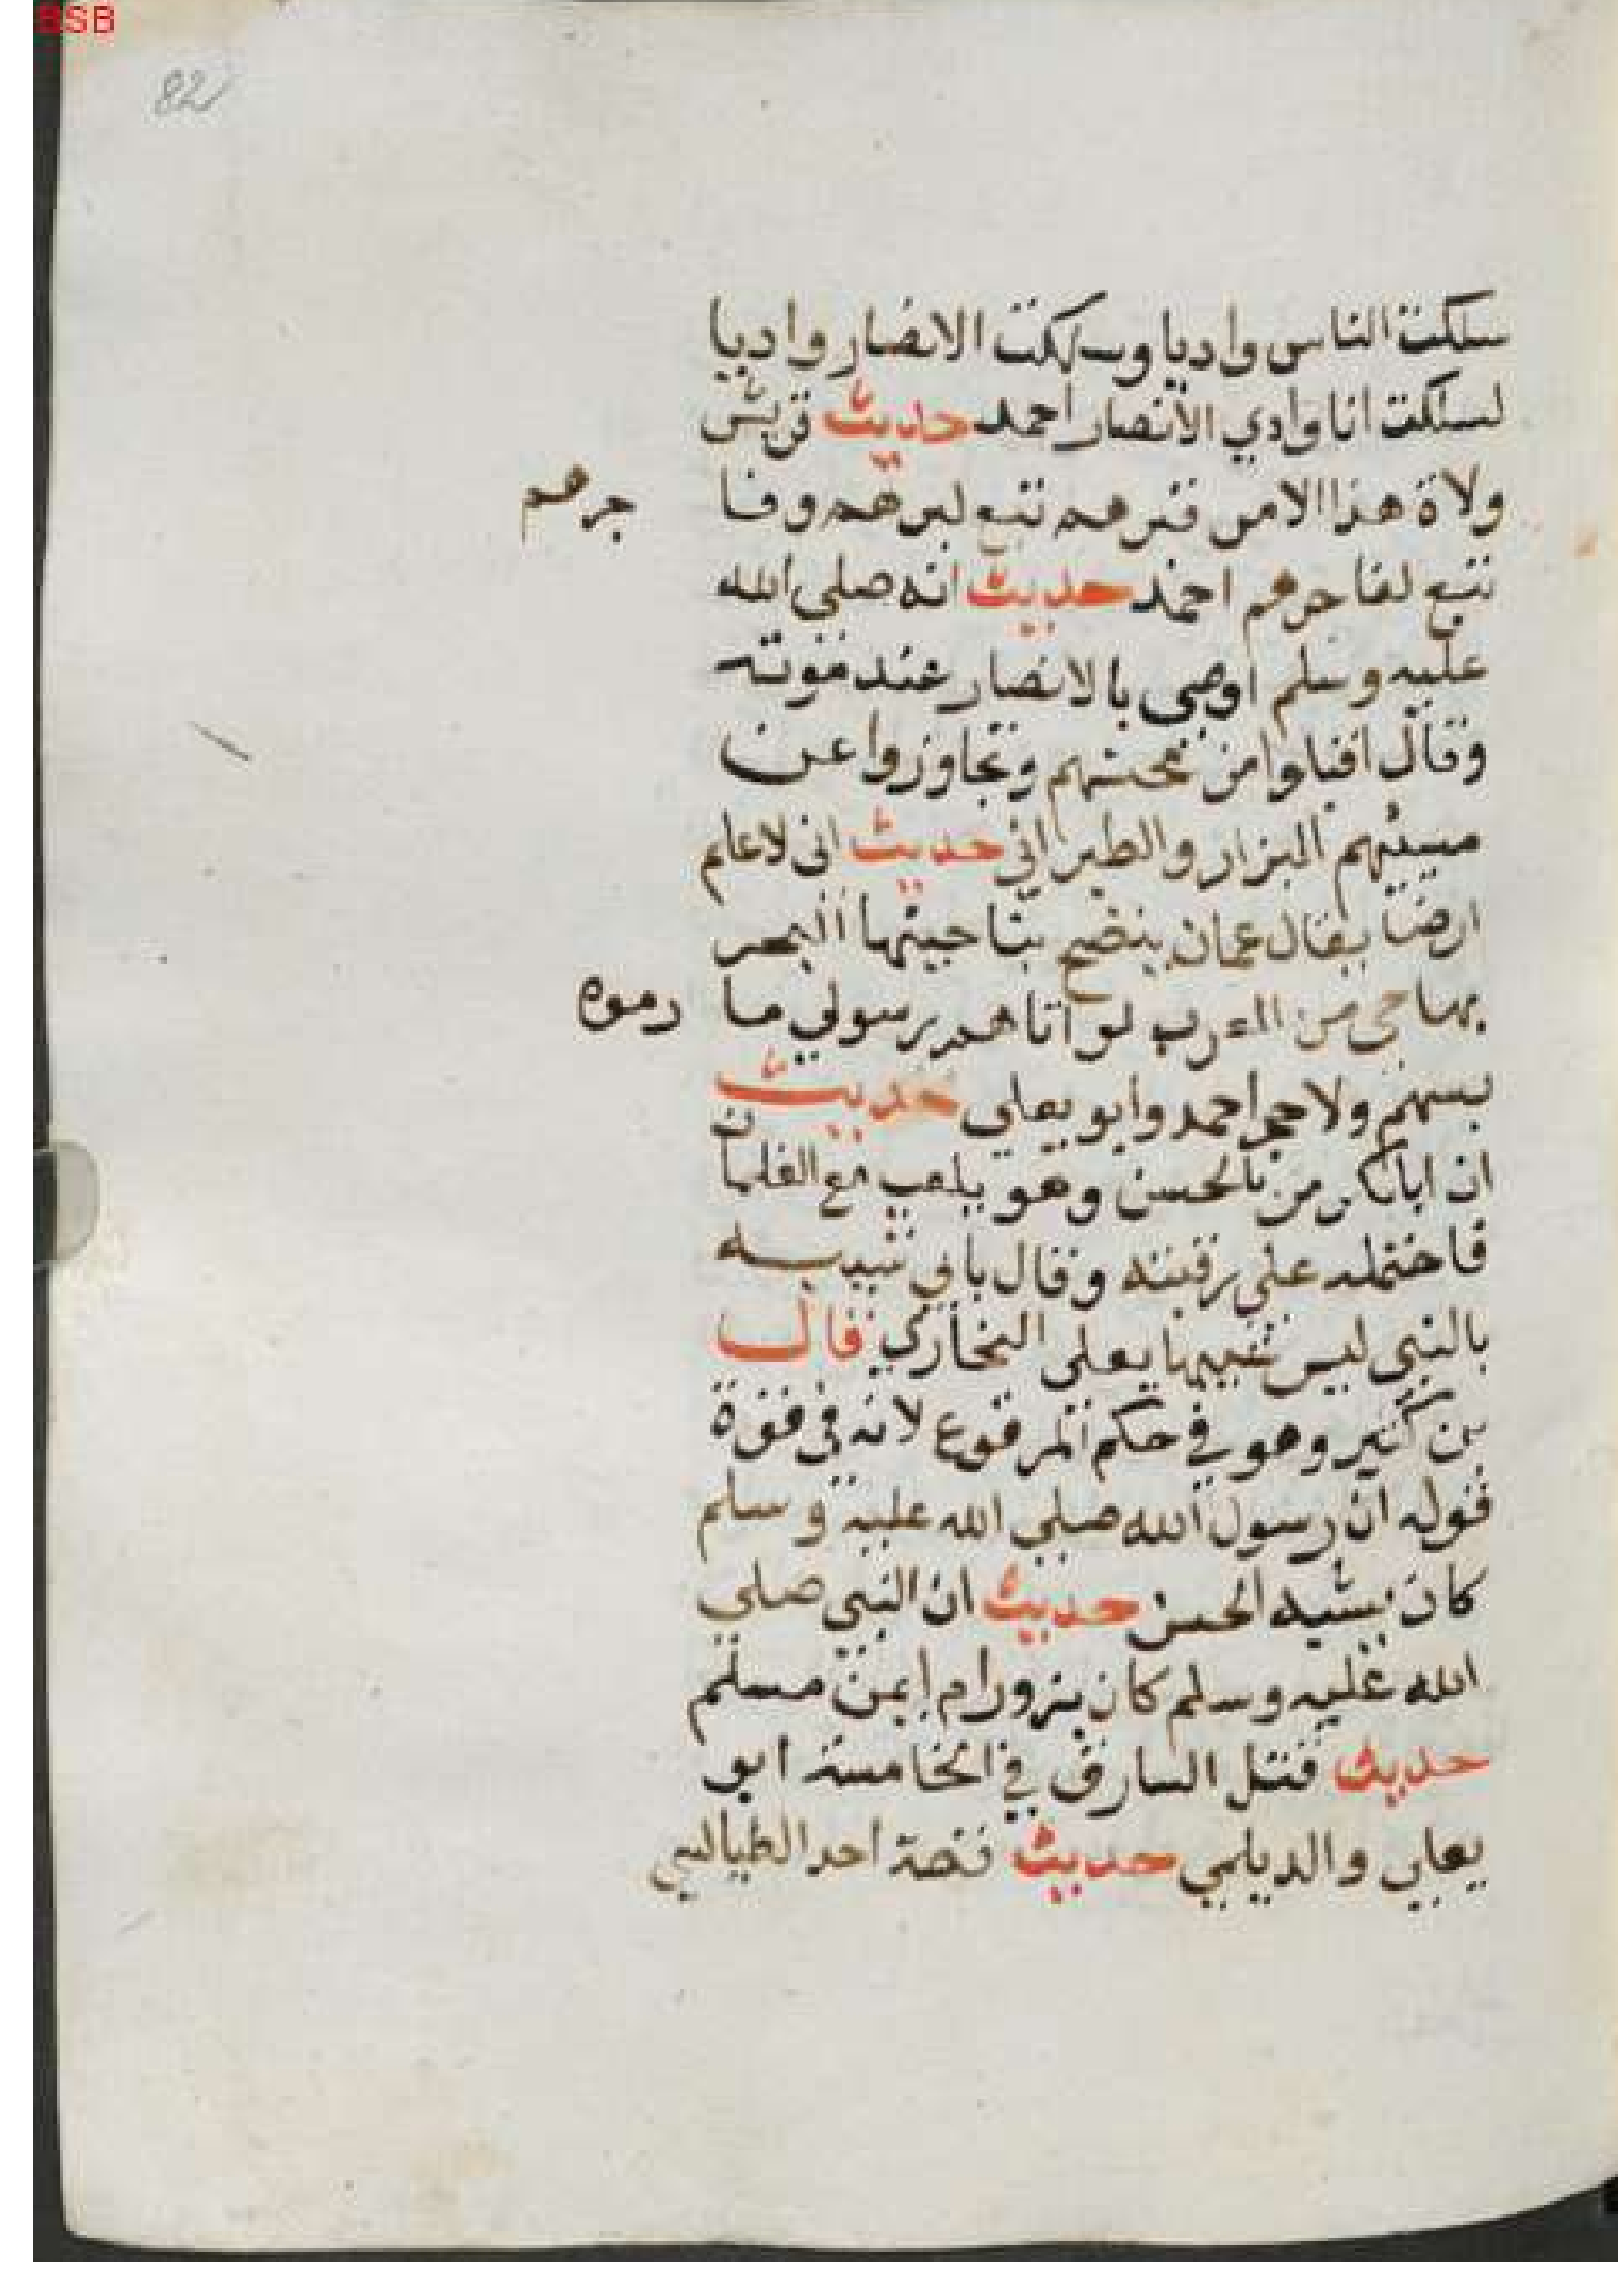 BSB
82
سلكت الناس واديا وسلكت الانصار واديا
لسلكت انا وادي الانصار احمد حديث قريش
ولاة هذا الامر فبرهم تبع لبرهم وفا جرهم
تتبع لفاجرهم احمد حديث انه صلي الله
عليه وسلم اوصي بالانصار عند موته
وقال اقبلوا من محسنهم وتجاوزوا عن
مسيئهم البزار والطبراني حديث اني لاعلم
ارضا يقال عمان ينضح بناحيتها البحر
بها حي من العرب لو اتاهم رسولي ما رموه
بسهم ولا حجر احمد وابو يعلي حديث
ان ابابكر مر بالحسن وهو يلعب مع الغلمان
فاحتمله علي رقبته وقال بابي شبيه
بالنبي ليس شبيها بعلي البخاري قال
بن كثير وهو في حكم المرفوع لانه في قوة
قوله ان رسول الله صلي الله عليه وسلم
كان يشبه الحسن حديث ان النبي صلي
الله عليه وسلم كان يزور ام ايمن مسلم
حديث قتل السارق في الخامسة ابو
يعلي والديلمي حديث قصة احد الطيالسي